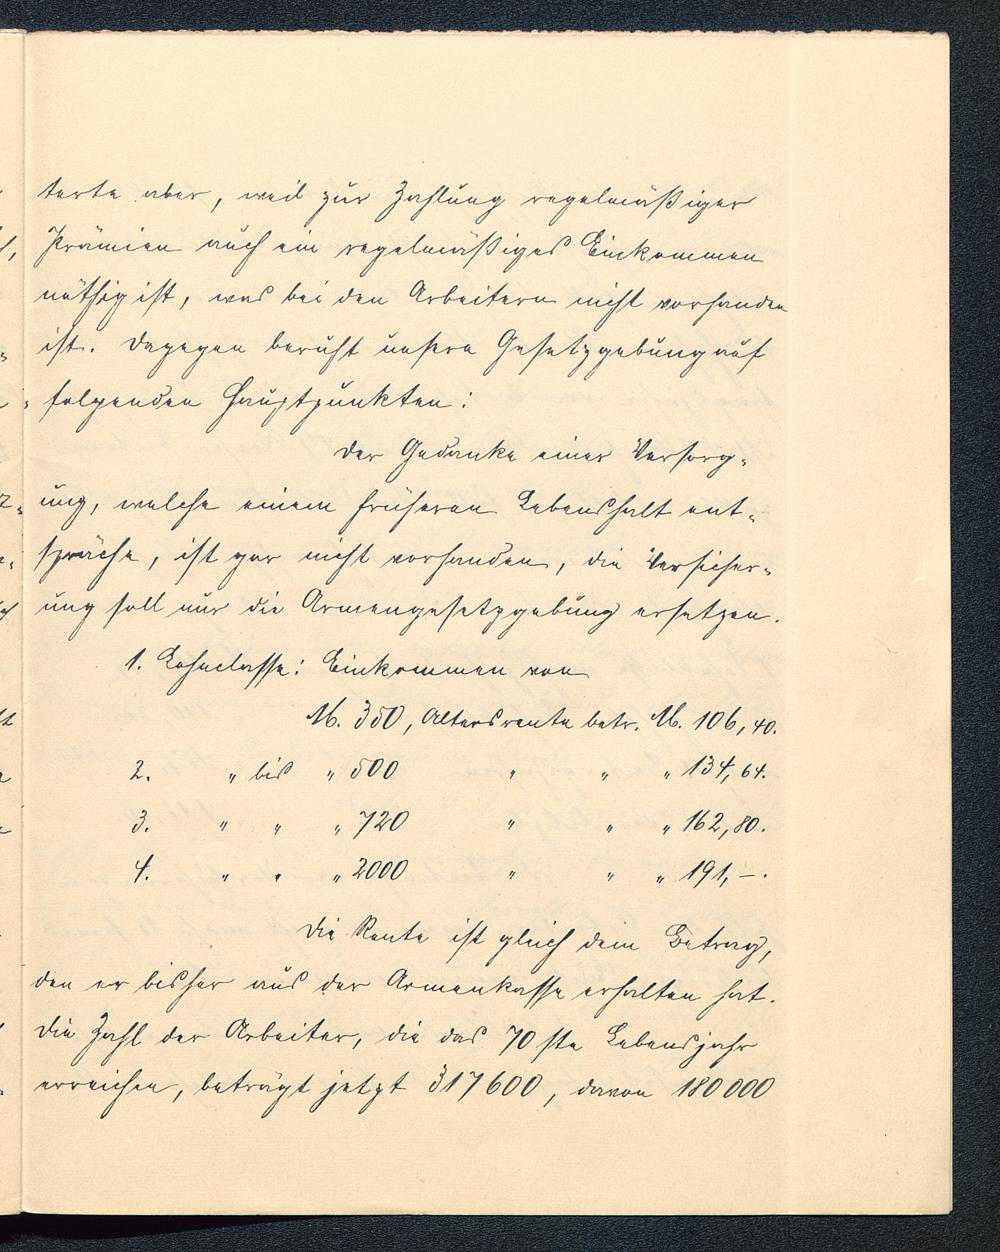 terte aber, weil zur Zahlung regelmäßiger
Prämien auch ein regelmäßiges Einkommen
nöthig ist, was bei den Arbeitern nicht vorhanden
ist. Dagegen beruht unsere Gesetzgebung auf
folgenden Hauptpunkten:
Der Gedanke einer Versorg-
ung, welche einem früheren Lebenshalt ent-
spräche, ist gar nicht vorhanden, die Versicher-
ung soll nur die Armengesetzgebung ersetzen.
1. Lohnclasse: Einkommen von
M. 350, Altersrente betr. M. 106,40.
2. " bis " 500 " " " 134,64.
3. " " " 720 " " " 162,80.
4. " " " 2000 " " " 191,–.
Die Rente ist gleich dem Betrag,
den er bisher aus der Armenkasse erhalten hat.
Die Zahl der Arbeiter, die das 70ste Lebensjahr
erreichen, beträgt jetzt 317600, davon 180000